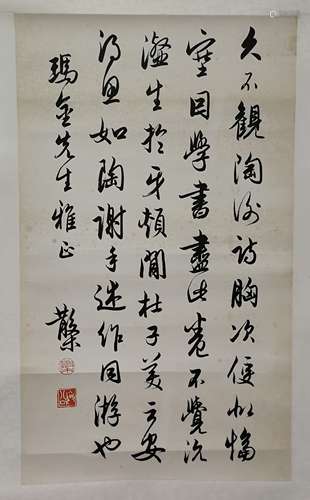 久不觀陶謝詩胸次便似愊
塞因學書盡此卷不覺沆
瀣生於牙頰間杜子美云安
得思如陶謝手述作同游也
瑪金先生雅正